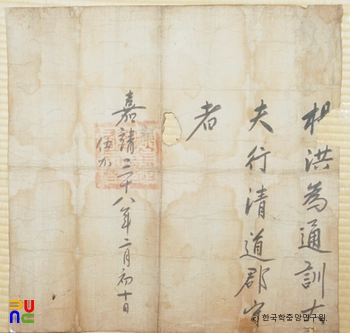 洪為通訓大
夫行清道郡守
者
嘉靖二十八年二月初十日
한국학중앙연구원